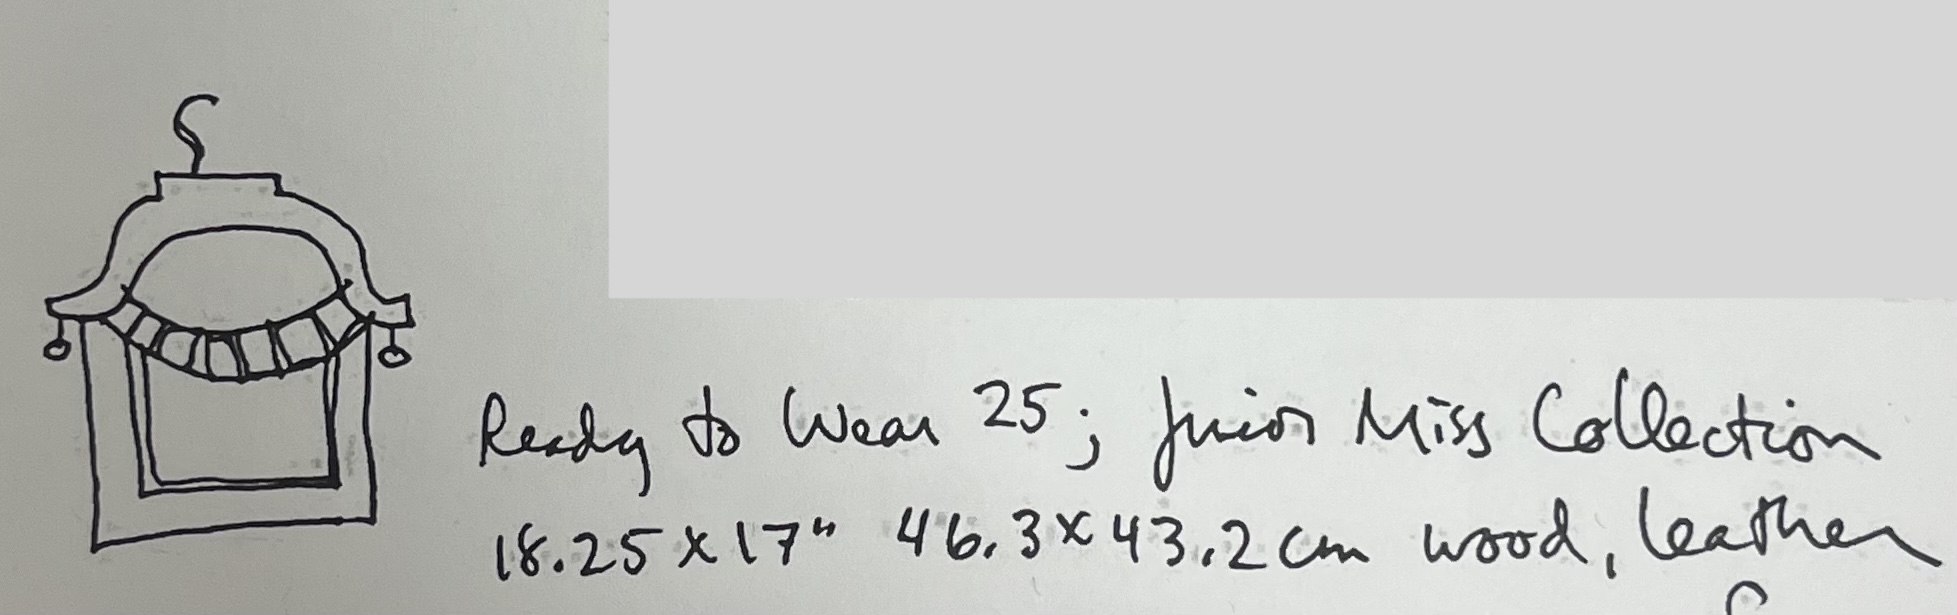 Ready to Wear 25; Junior Miss Collection
18.25 x 17" 46.3 x 43.2 cm wood, leather